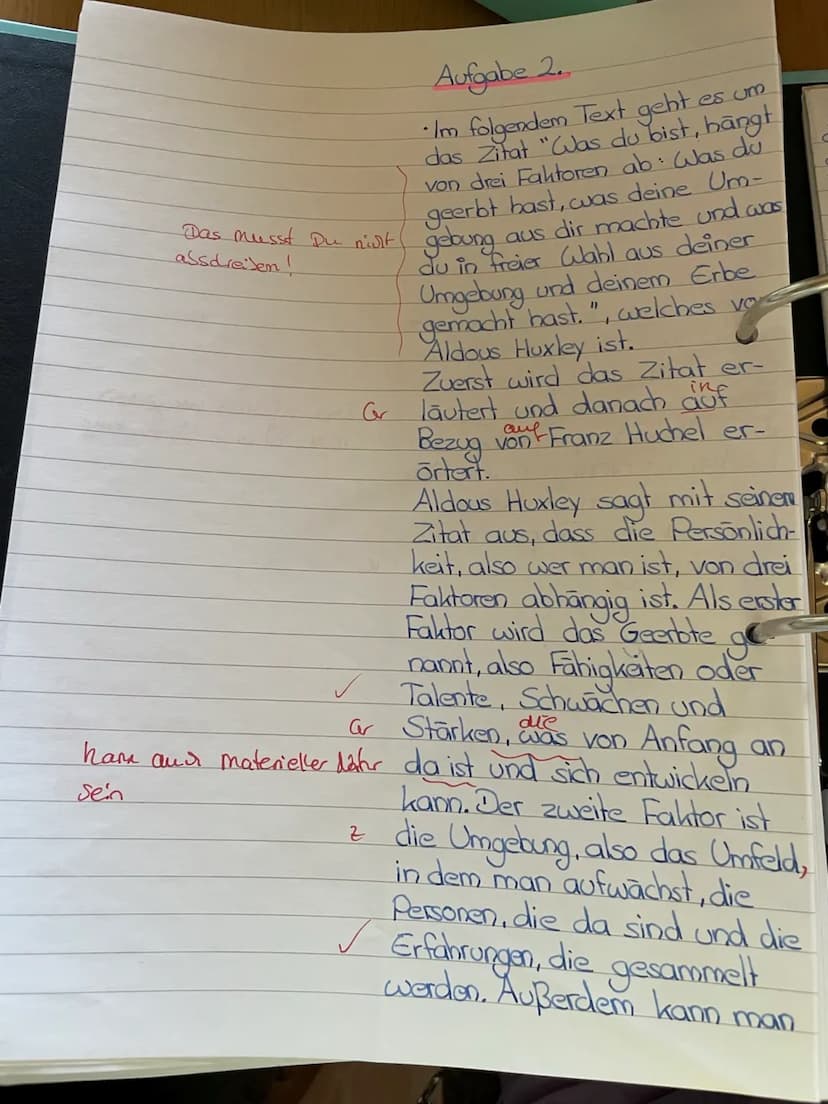 Aufgabe 2.
·Im folgendem Text geht es um
das Zitat "Was du bist, hängt
von drei Faktoren ab: Was du
geerbt hast, was deine Um-
gebung aus dir machte und was
du in freier Wahl aus deiner
Umgebung und deinem Erbe
gemacht hast.", welches
Aldous Huxley ist.
Das musst Du nicht
abschreiben!
Zuerst wird das Zitat er-
in
Gr läutert und danach auf
auf
Bezug von Franz Huchel er-
örtert.
Aldous Huxley sagt mit seinem
Zitat aus, dass die Persönlich-
keit, also wer man ist, von drei
Faktoren abhängig ist. Als erster
Faktor wird das Geerbte ge
nannt, also Fähigkeiten oder
✓ Talente, Schwächen und
die
Gr Stärken, was von Anfang an
kann auch materieller Natur da ist und sich entwickeln
sein kann. Der zweite Faktor ist
Z die Umgebung, also das Umfeld,
in dem man aufwächst, die
Personen, die da sind und die
✓ Erfahrungen, die gesammelt
werden. Außerdem kann man